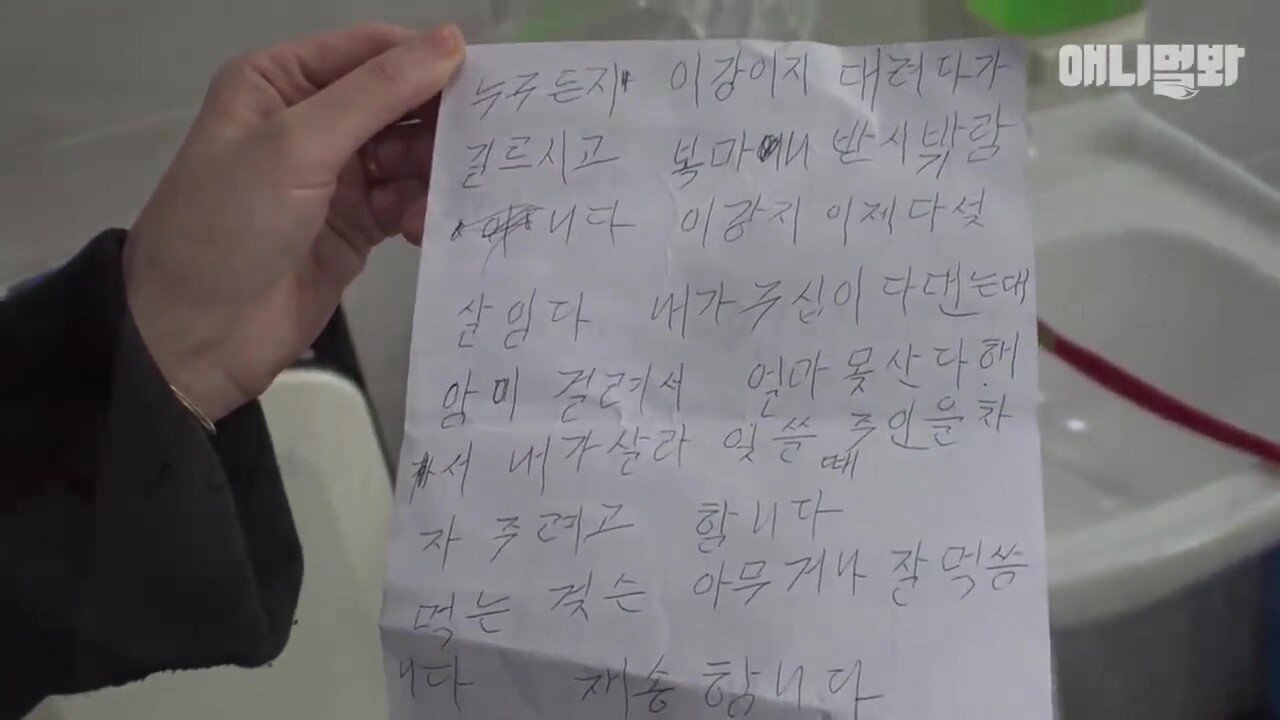 애니멀봐
누구든지 이강이지 대려다가
길르시고 복마애니 받시밖람
니다 이강지 이제다섯
살임다 내가 주십이 다댄는대
암이 걸려서 얼마 못산다해
서 내가살라 잊쓸 때 주인을차
자 주려고 함니다
먹는 것슨 아무거나 잘먹씀
니다 재송함니다